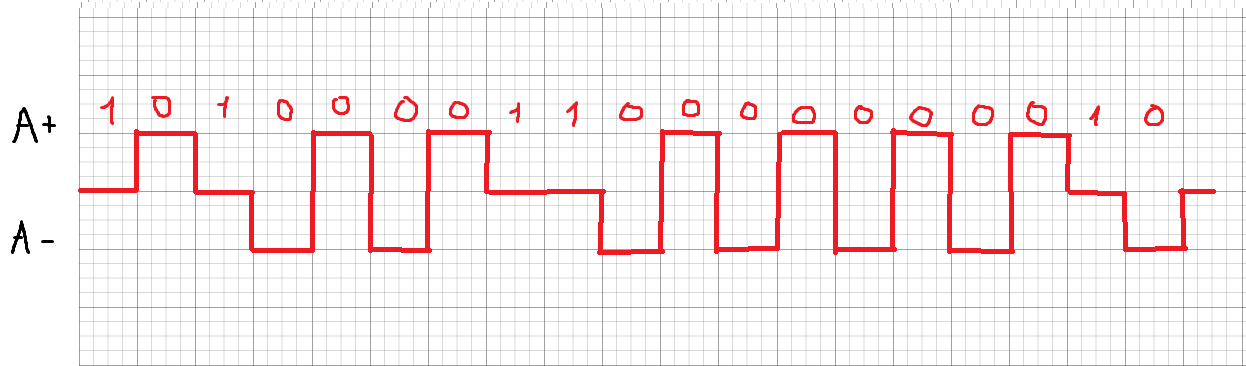 1 0 1 0 0 0 0 1 1 0 0 0 0 0 0 0 0 1 0
A+
A-